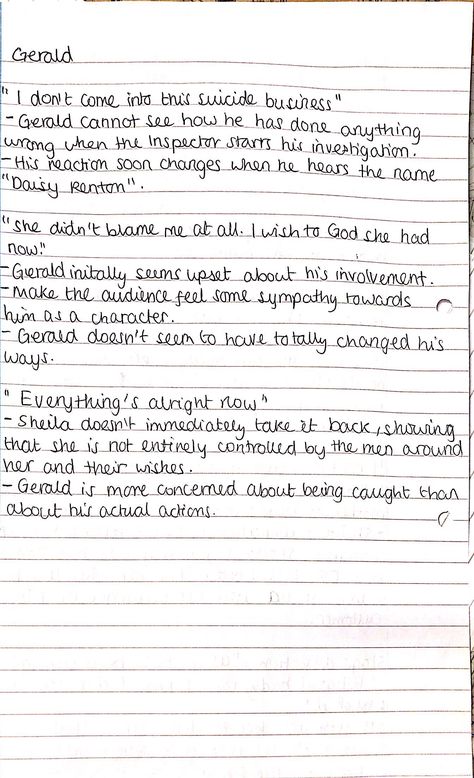 Gerald
" I don't come into this suicide business"
- Gerald cannot see how he has done anything
wrong when the Inspector starts his investigation.
- His reaction soon changes when he hears the name
"Daisy Renton".
"She didn't blame me at all. I wish to God she had
now."
- Gerald initally seems upset about his involvement.
- Make the audience feel some sympathy towards
him as a character.
- Gerald doesn't seem to have totally changed his
ways.
" Everything's alright now"
- Sheila doesn't immediately take it back, showing
that she is not entirely controlled by the men around
her and their wishes.
- Gerald is more concerned about being caught than
about his actual actions.